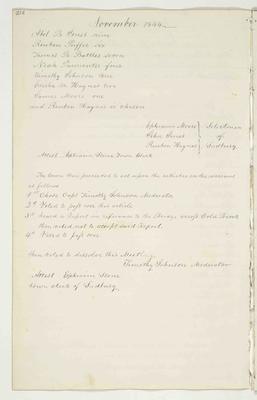 November 1844
Abel B. Jones nine
Reuben Puffer six
James B. Battles seven
Noah Parmenter four
Timothy Johnson one
Curtis W. Haynes two
James Moore one
and Reuben Haynes is chosen
Ephraim Moore } Selectmen
John Jones } of
Reuben Haynes } Sudbury
Attest Ephraim Stone Town Clerk
The town then proceeded to act upon the articles in the warrant
as follows
1st Chose Capt Timothy Johnson Moderator
2d Voted to pass over this article
3d heard a Report in reference to the Bridge over Cold Brook
then voted not to accept said Report.
4th Voted to pass over
then voted to dissolve this Meeting
Timothy Johnson Moderator
Attest Ephraim Stone
town clerk of Sudbury